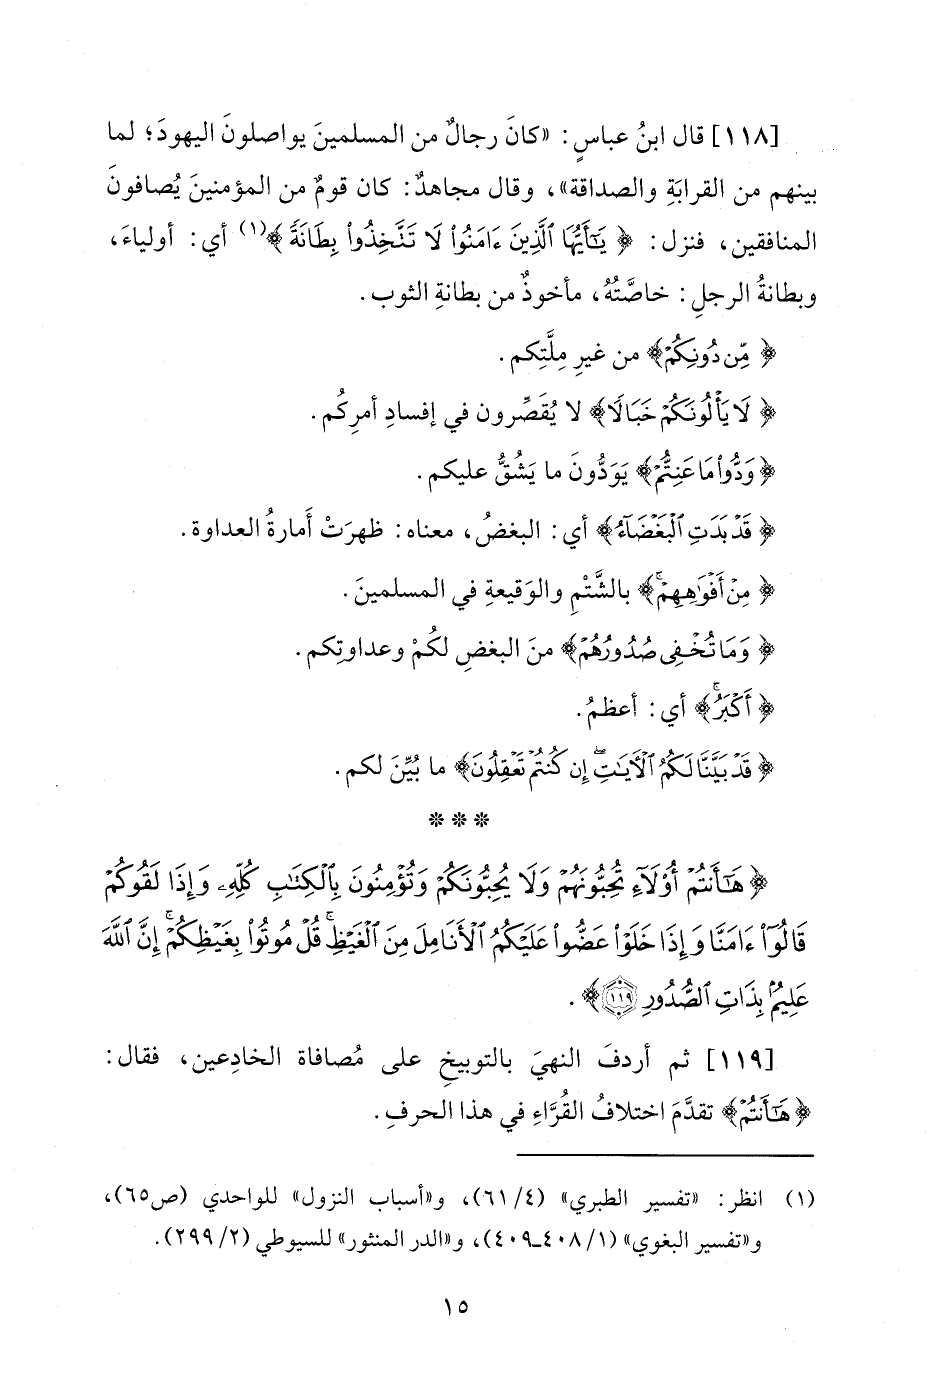 [١١٨] قال ابنُ عباسٍ: «كانَ رجالٌ من المسلمينَ يواصلونَ اليهودَ؛ لما
بينهم من القرابَةِ والصداقة»، وقال مجاهدٌ: كان قومٌ من المؤمنينَ يُصافونَ
المنافقين، فنزل: ﴿يَٰٓأَيُّهَا ٱلَّذِينَ ءَامَنُوا۟ لَا تَتَّخِذُوا۟ بِطَانَةً﴾(١) أي: أولياءَ،
وبطانةُ الرجلِ: خاصَّتُهُ، مأخوذٌ من بطانةِ الثوب.
﴿مِّن دُونِكُمْ﴾ من غيرِ مِلَّتِكم.
﴿لَا يَأْلُونَكُمْ خَبَالًا﴾ لا يُقَصِّرون في إفسادِ أمرِكُم.
﴿وَدُّوا۟ مَا عَنِتُّمْ﴾ يَوَدُّونَ ما يَشُقُّ عليكم.
﴿قَدْ بَدَتِ ٱلْبَغْضَآءُ﴾ أي: البغضُ، معناه: ظهرَتْ أَمارةُ العداوة.
﴿مِنْ أَفْوَٰهِهِمْ﴾ بالشَّتْمِ والوَقيعةِ في المسلمينَ.
﴿وَمَا تُخْفِى صُدُورُهُمْ﴾ منَ البغضِ لكُمْ وعداوتِكم.
﴿أَكْبَرُ﴾ أي: أعظمُ.
﴿قَدْ بَيَّنَّا لَكُمُ ٱلْءَايَٰتِ إِن كُنتُمْ تَعْقِلُونَ﴾ ما بُيِّنَ لكم.
***
﴿هَٰٓأَنتُمْ أُو۟لَآءِ تُحِبُّونَهُمْ وَلَا يُحِبُّونَكُمْ وَتُؤْمِنُونَ بِٱلْكِتَٰبِ كُلِّهِۦ وَإِذَا لَقُوكُمْ
قَالُوٓا۟ ءَامَنَّا وَإِذَا خَلَوْا۟ عَضُّوا۟ عَلَيْكُمُ ٱلْأَنَامِلَ مِنَ ٱلْغَيْظِ ۚ قُلْ مُوتُوا۟ بِغَيْظِكُمْ ۗ إِنَّ ٱللَّهَ
عَلِيمٌۢ بِذَاتِ ٱلصُّدُورِ ١١٩﴾.
[١١٩] ثم أردفَ النهيَ بالتوبيخِ على مُصافاة الخادِعين، فقال:
﴿هَٰٓأَنتُمْ﴾ تقدَّمَ اختلافُ القُرَّاءِ في هذا الحرفِ.
(١) انظر: «تفسير الطبري» (٤/ ٦١)، و«أسباب النزول» للواحدي (ص٦٥)،
و«تفسير البغوي» (١/ ٤٠٨-٤٠٩)، و«الدر المنثور» للسيوطي (٢/ ٢٩٩).
١٥